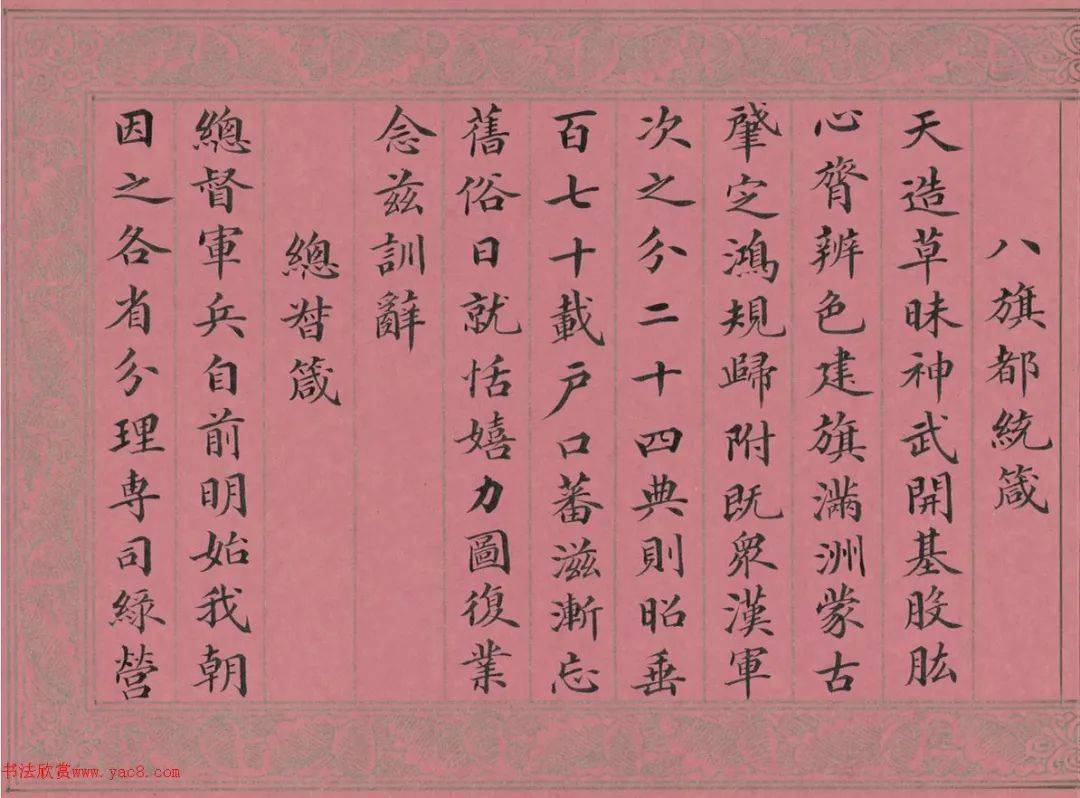 八旗都統箴
天造草昧神武開基股肱
心膂辨色建旗滿洲蒙古
肇定鴻規歸附既眾漢軍
次之分二十四典則昭垂
百七十載戶口蕃滋漸忘
舊俗日就恬嬉力圖復業
念茲訓辭
總督箴
總督軍兵自前明始我朝
因之各省分理專司綠營
书法欣赏www.yac8.com